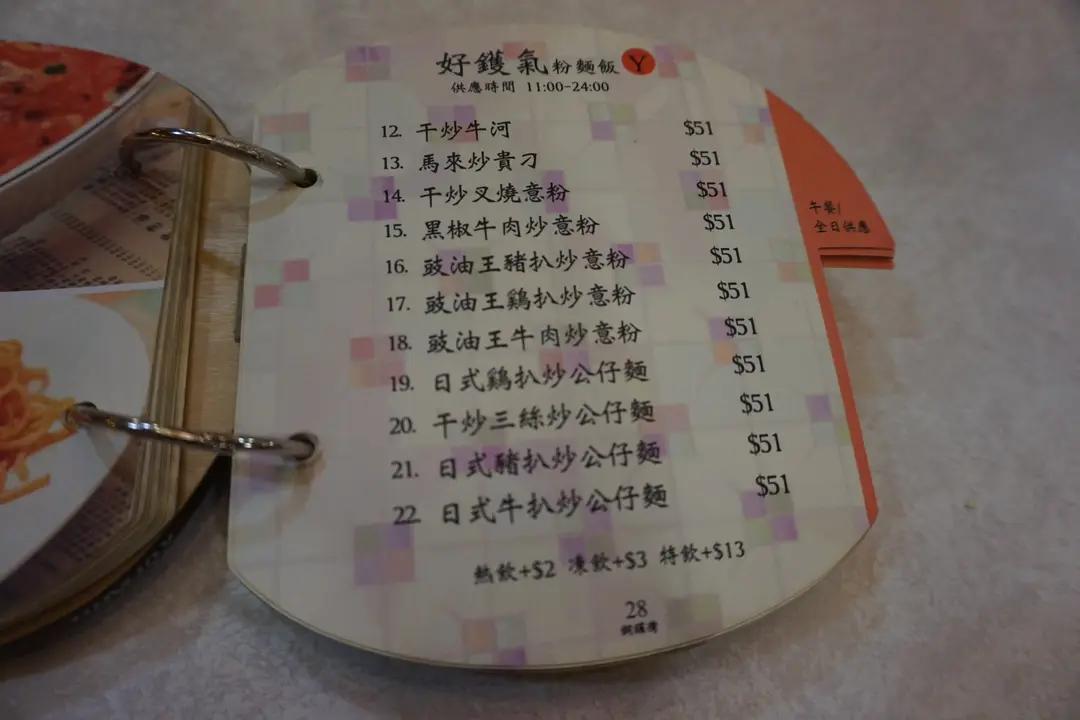 好鑊氣粉麵飯 Y
供應時間 11:00-24:00
12. 干炒牛河 $51
13. 馬來炒貴刁 $51
14. 干炒叉燒意粉 $51
15. 黑椒牛肉炒意粉 $51
16. 豉油王豬扒炒意粉 $51
17. 豉油王鷄扒炒意粉 $51
18. 豉油王牛肉炒意粉 $51
19. 日式鷄扒炒公仔麵 $51
20. 干炒三絲炒公仔麵 $51
21. 日式豬扒炒公仔麵 $51
22 日式牛扒炒公仔麵 $51
熱飲+$2 凍飲+$3 特飲+$13
28
銅鑼灣
午餐/
全日供應